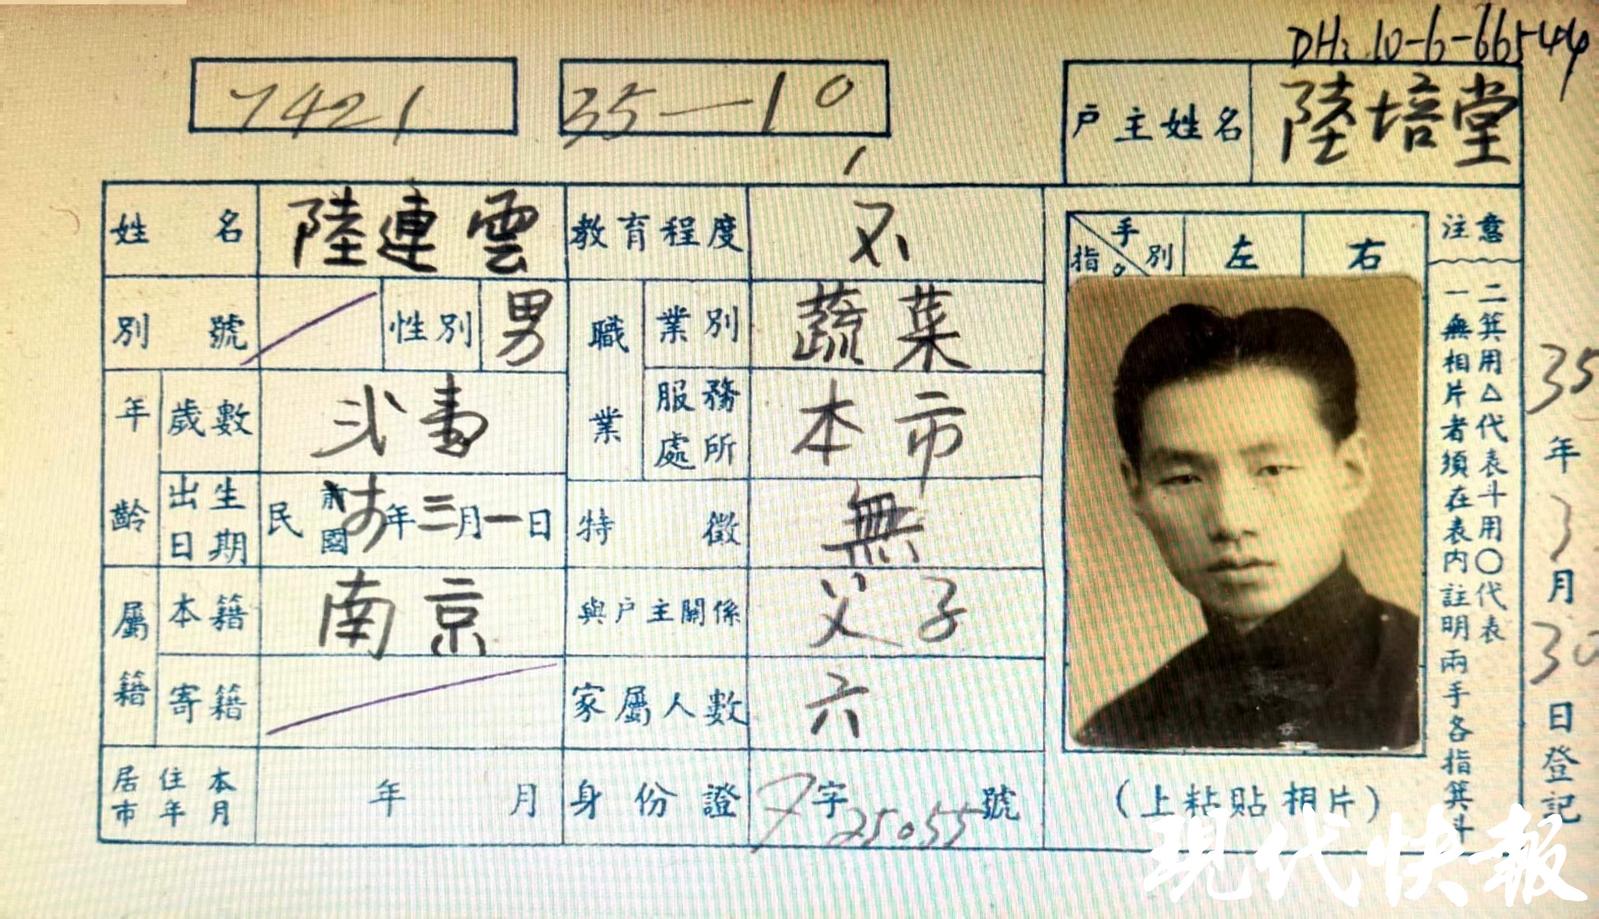 DH: 10-6-66544
7421
35-10
户主姓名 陸培堂
姓名 陸連雲
教育程度 不
別號
性別 男
職業
業別 蔬菜
服務處所 本市
年齡
歲數
出生日期 民前國 年三月一日
特徵 無
屬籍
本籍 南京
與户主關係 父子
寄籍
家屬人數 六
居住本市年月 年 月
身份證 字 號
指 手別 左 右
(上粘貼相片)
注意
一無相片者須在表內註明兩手各指箕斗
二箕用△代表斗用○代表
35年3月30日登記
現代快報